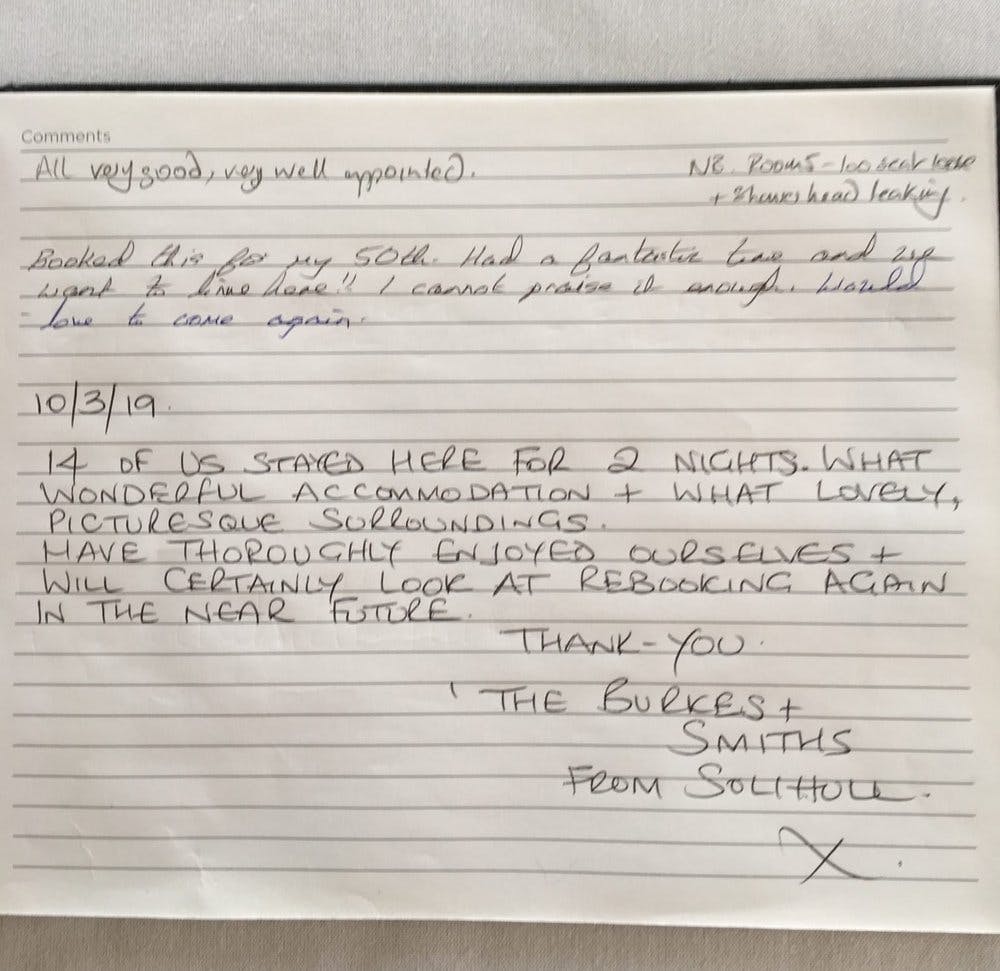 Comments
All very good, very well appointed.
NB. Room 5 - loo seat loose
+ Shower head leaking.
Booked this for my 50th. Had a fantastic time and we
want to live here!! I cannot praise it enough. Would
love to come again.
10/3/19.
14 OF US STAYED HERE FOR 2 NIGHTS. WHAT
WONDERFUL ACCOMMODATION + WHAT LOVELY,
PICTURESQUE SURROUNDINGS.
HAVE THOROUGHLY ENJOYED OURSELVES +
WILL CERTAINLY LOOK AT REBOOKING AGAIN
IN THE NEAR FUTURE.
THANK-YOU.
' THE BURKES +
SMITHS
FROM SOLIHULL.
X.